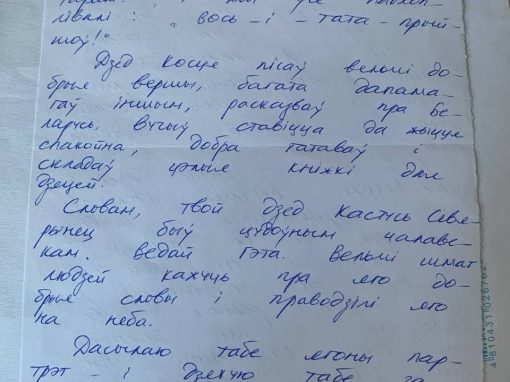 лівалі: "вось-і-тата-прый-
шоў!"
Дзед Косця пісаў вельмі до-
брые вершы, багата дапама-
гаў іншым, расказваў пра Бе-
ларусь, вучыў ставіцца да жыцце
спакойна, добра гатаваў і
складаў цэлые кніжкі для
дзецей.
Словам, твой дзед Кастусь Севе-
рынец быў цудоўным чалаве-
кам. Ведай гэта. Вельмі шмат
людзей кажуць пра яго до-
брые словы і праводзілі яго
на неба.
Дасылаю табе ягоны пар-
трэт - і дзякую табе за
4810431026762